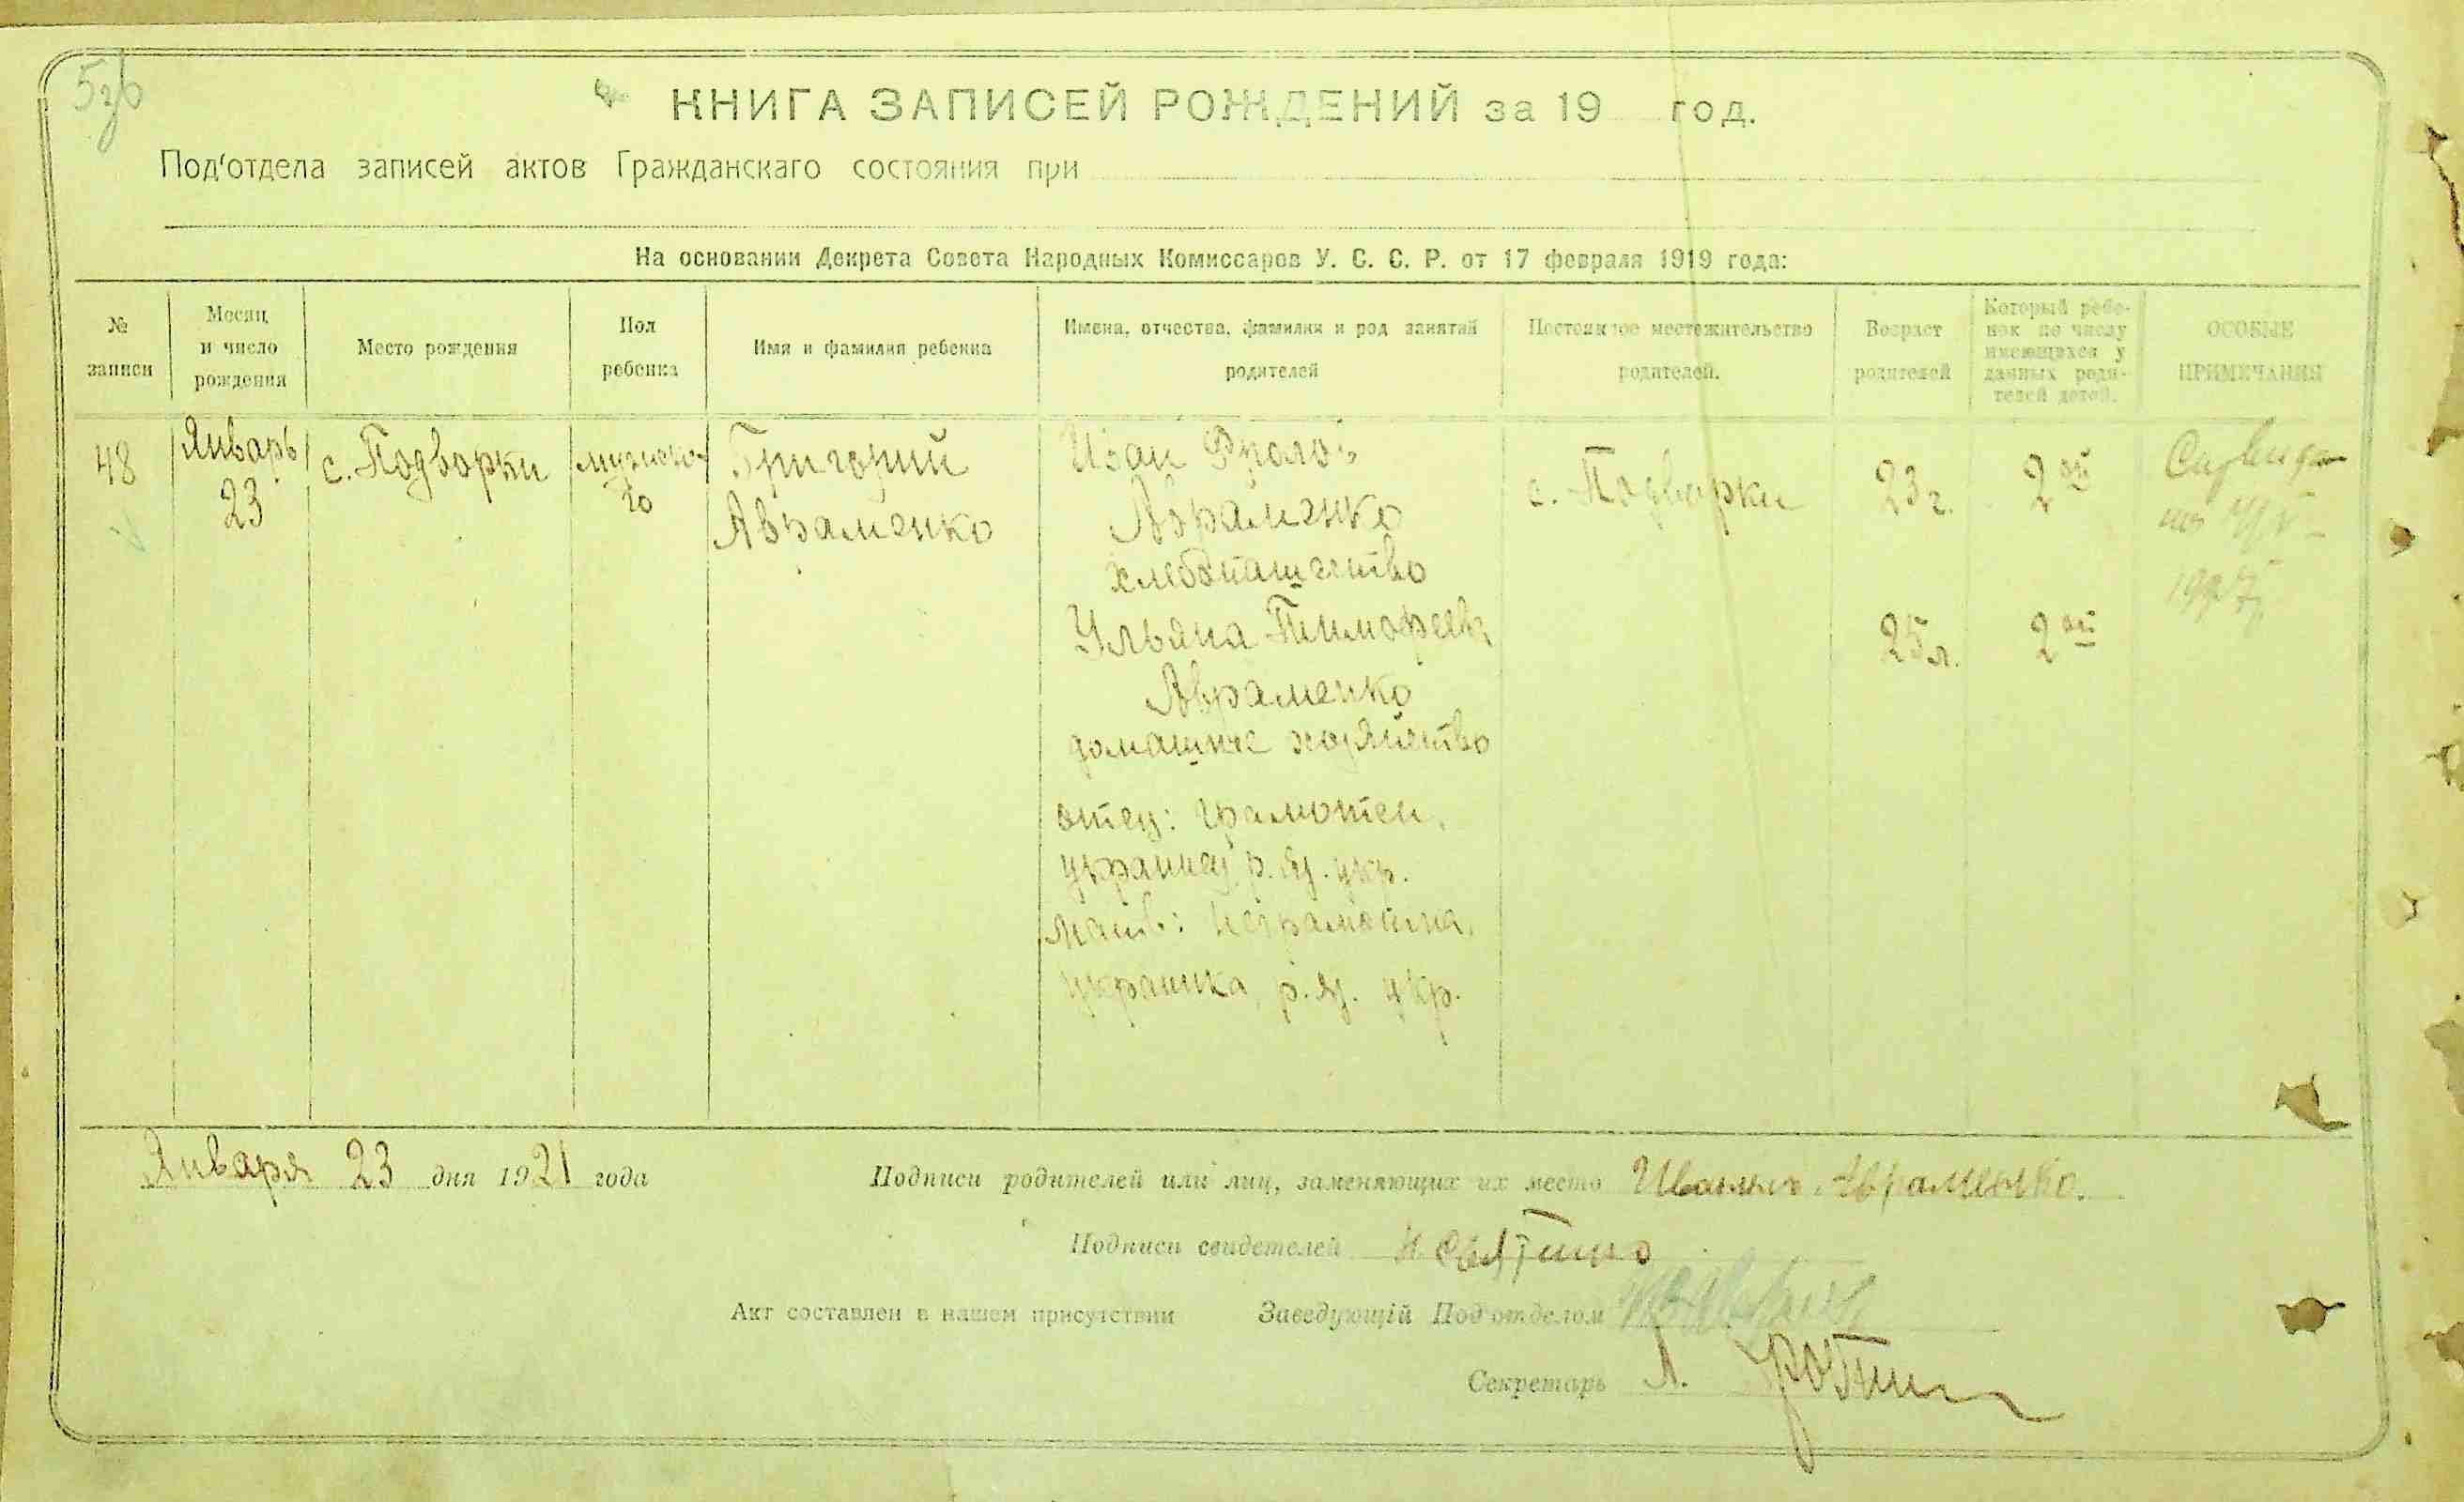 КНИГА ЗАПИСЕЙ РОЖДЕНИЙ за 19 год.
Под'отдела записей актов Гражданскаго состояния при
На основании Декрета Совета Народных Комиссаров У. С. С. Р. от 17 февраля 1919 года:
№ записи
Месяц и число рождения
Место рождения
Пол ребенка
Имя и фамилия ребенка
Имена, отчества, фамилии и род занятий родителей
Постоянное местожительство родителей.
Возраст родителей
Который ребенок по числу имеющихся у данных родителей детей.
ОСОБЫЕ ПРИМЕЧАНИЯ
48
Январь
23
с. Подворки
мужско-
го
Григорий
Авраменко
Иван Фролов
Авраменко
хлебопашество
Ульяна Тимофеев
Авраменко
домашнее хозяйство
отец: грамотен,
украинец, р. яз. укр.
мать: неграмотна,
украинка, р. яз. укр.
с. Подворки
23 г.
25 л.
2ой
2ой
Января 23 дня 1921 года
Подписи родителей или лиц, заменяющих их место Авраменко.
Подписи свидетелей
Акт составлен в нашем присутствии Заведующій Под'отделом
Секретарь Л.